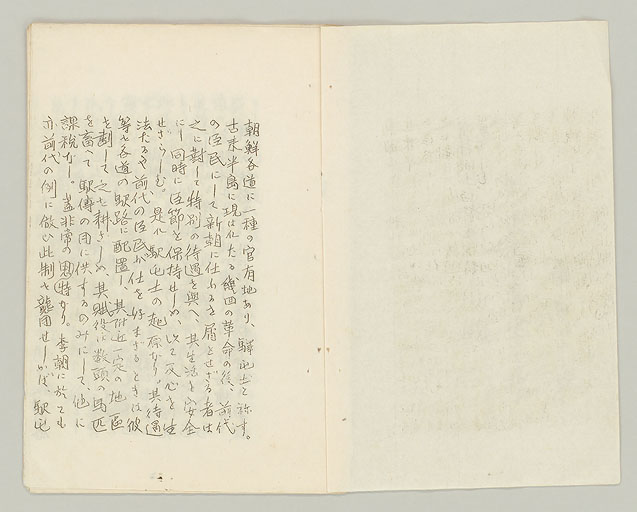 朝鮮各道に一種の官有地あり、驛屯土と称す。
古来半島に現はれたる幾回の革命の後、前代
の臣民にして新朝に仕ふるを屑とせざる者は
之に對して特別の待遇を與へ、其生活を安全
にし同時に臣節を保持せしめ、以て反心を生
せざらしむ。是れ駅屯土の起原なり。其待遇
法たるや前代の臣民が仕を好まざるときは彼
等を各道の駅路に配置し、其附近一定の地区
を劃して之を耕さしめ、其賦役は数頭の馬匹
を畜へて駅傳の用に供するのみにして他に
課税なし。蓋非常の恩特なり。李朝に於ても
亦前代の例に倣ひ此制を襲用せしかば、駅屯